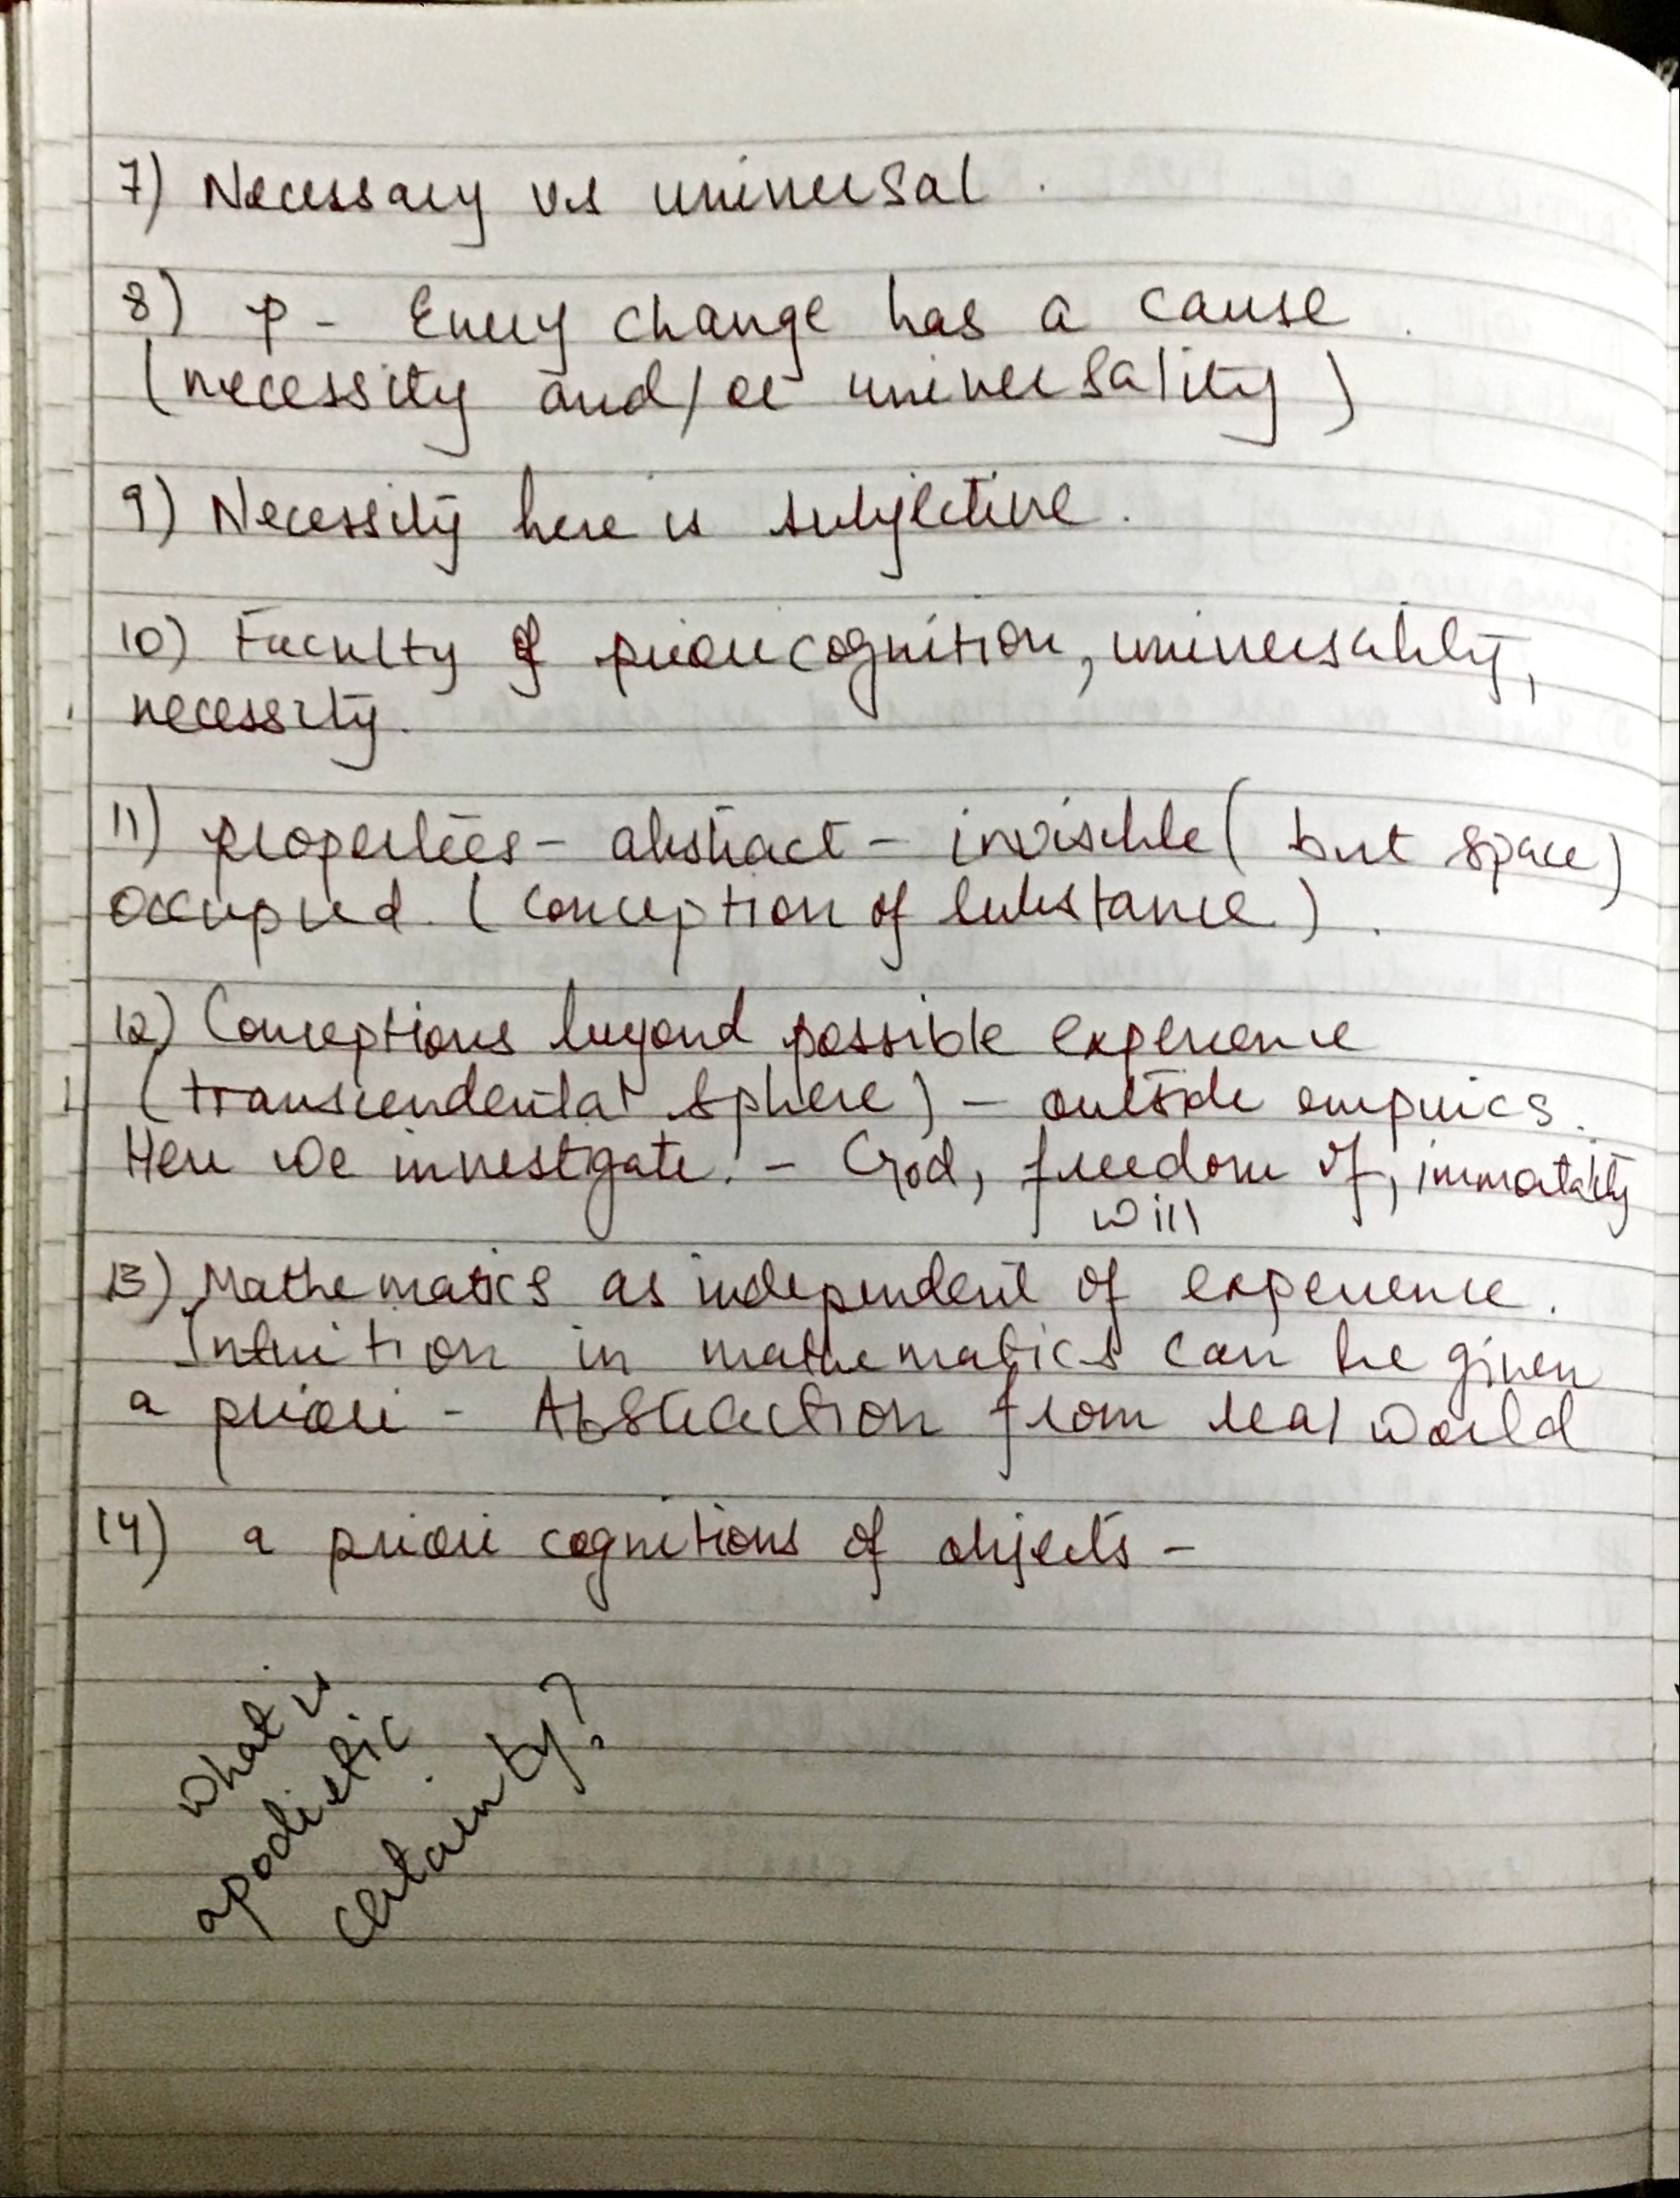 7) Necessary vs universal.
8) P - Every change has a cause.
(necessity and/or universality)
9) Necessity here is subjective.
10) Faculty of priori cognition, universality,
necessity.
11) properties - abstract - invisible (but space)
occupied. (conception of substance).
12) Conceptions beyond possible experience
(transcendental sphere) - outside empirics.
Here we investigate! - God, freedom of, immortality
will
13) Mathematics as independent of experience.
Intuition in mathematics can be given
a priori - Abstraction from real world
14) a priori cognitions of objects -
What is
apodictic
certainty?